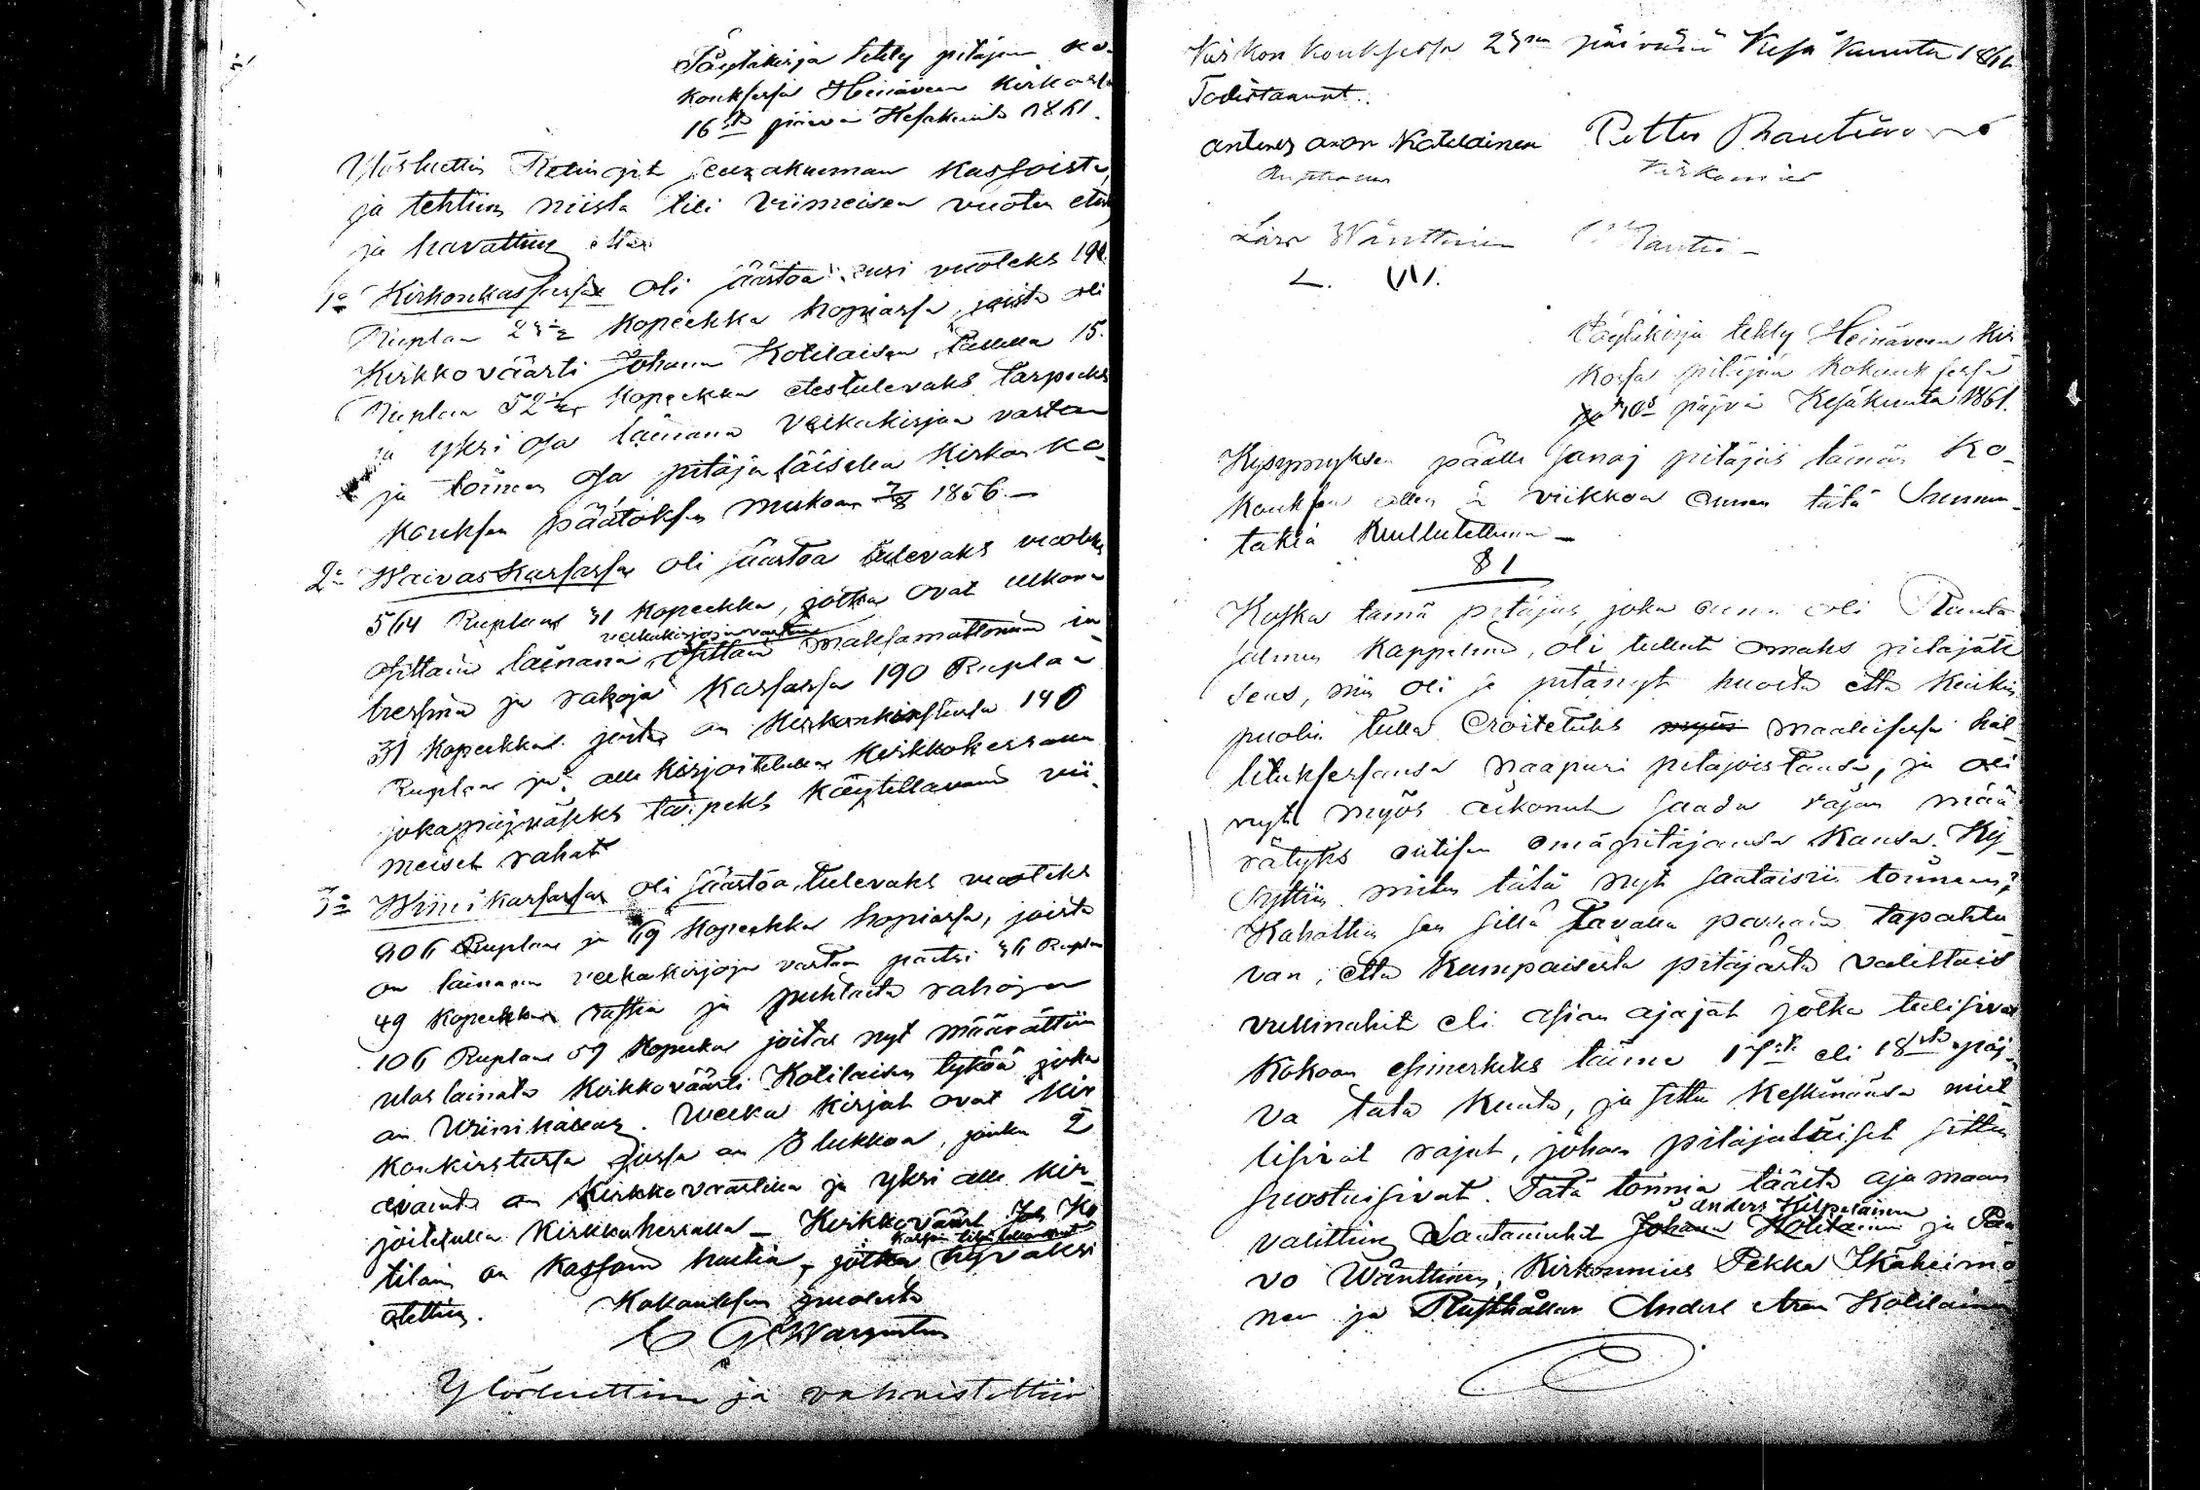 Pöytäkirja tehty pitäjän ko-
kouksessa Heinäveen Kirkossa
16sta päivä Kesäkuuta 1861.
Ylösluettin Räkingit seurakunnan kassoista,
ja tehtiin niistä tili viimeisen vuoden
ja havattiin että
1o Kirkonkassassa oli säästöä uusi vuoteks 19
Ruplan 23 1/2 Kopeekka hopiassa, joista oli
Kirkkoväärti Johann Kotilaisen tallella 15
Ruplan 52 1/2 Kopeekka edestulevaks tarpeeks
ja yksi osa lainana velkakirjan vastaan
ja toinen osa pitäjäläisellä Kirkon ko-
kouksen päätöksen mukaan 1856.—
2o Waivaskassassa oli säästöä tulevaks vuodeks
564 Ruplaa 31 Kopeekka, jotka ovat ulkona
velkakirjoja vastaan
osittain lainana, osittain maksamattomana in-
tressinä ja rahoja Kassassa 190 Ruplaa
31 Kopeekkaa joita on Kirkonkirstusa 140
Ruplaa ja alle kirjoitetulla Kirkkoherralla
jokapäiväseks tarpeks käytettävänä vii-
meiset rahat
3o Wiinikassassa oli säästöä tulevaks vuoteks
906 Ruplaa ja 69 Kopeekka hopiassa, joista
on lainana velkakirjoja vastaan paitsi 36 Ruplaa
49 Kopeekkaa ja puhtaita rahoja
106 Ruplaa 59 Kopeekaa joita nyt määrättiin
ulos lainata Kirkkoväärti Kotilaisen tyköä joka
on Wiinikassan. Welka kirjat ovat kir
konkirstussa jossa on 3 lukkoa, joiden 2
avainta on Kirkkoväärtilla ja yksi alle kir-
joitetulla Kirkkoherralla — Kirkkoväärt Joh Ko
tilain on Kassain huetia, jotka hyväksi
otettiin.
Kokouksen puolesta
C G Wargentin
Ylösluettiin ja vahvistettiin
Kirkon kouksessa 23na päivänä Kesä kuuta 1861
Todistaavat.
anders aron Kotilainen Petter Rautiainen
Kirkomies
Lars Wänttinen P Rauti
L. W.
Pöytäkirja tehty Heinäveen Kir
kossa pitäjän Kokouksessa
10s päivä Kesäkuuta 1861.
Kysymyksen päälle sanoj pitäjäs tämän Ko-
kouksen ollen 2 viikkoa ennen tätä Sunnu-
takia Kuullutettuna —
§ 1
Koska tämä pitäjäs, joka ennen oli Ranta
salmen Kappelina, oli tullut omaks pitäjäk
seus, niin oli ja pitänyt huolta että kaikin
puolin tulla eroitetuks myös maallisessa hal
litukfessansa naapuri pitäjoistansa, ja oli
nyt myös aikonut saada rajan mää
rätyks entisen emäpitäjänsä kansa. Ky-
syttiin miten tätä nyt saataisiin toimeen?
Kahottiin sen sillä tavalla parhain tapahtu
van, että Kumpaisesta pitäjästä valittais
vallmahit eli asian ajajat jotka tulisivat
Kokoon esimerkiks tämä 17st eli 18sta päi-
vä tätä kuuta, ja sitte keskenänsä miet
tisivat rajat, johon pitäjäläiset sitten
suostuisivat. Tätä toimia täältä ajamaan
anders Kilpeläinen
valittiin Lautamiehet Johann Kotilainen ja Paa
vo Wänttinen, Kirkonmies Pekka Ikäheimo
nen ja Rusthållar Anders Aron Kotilainen